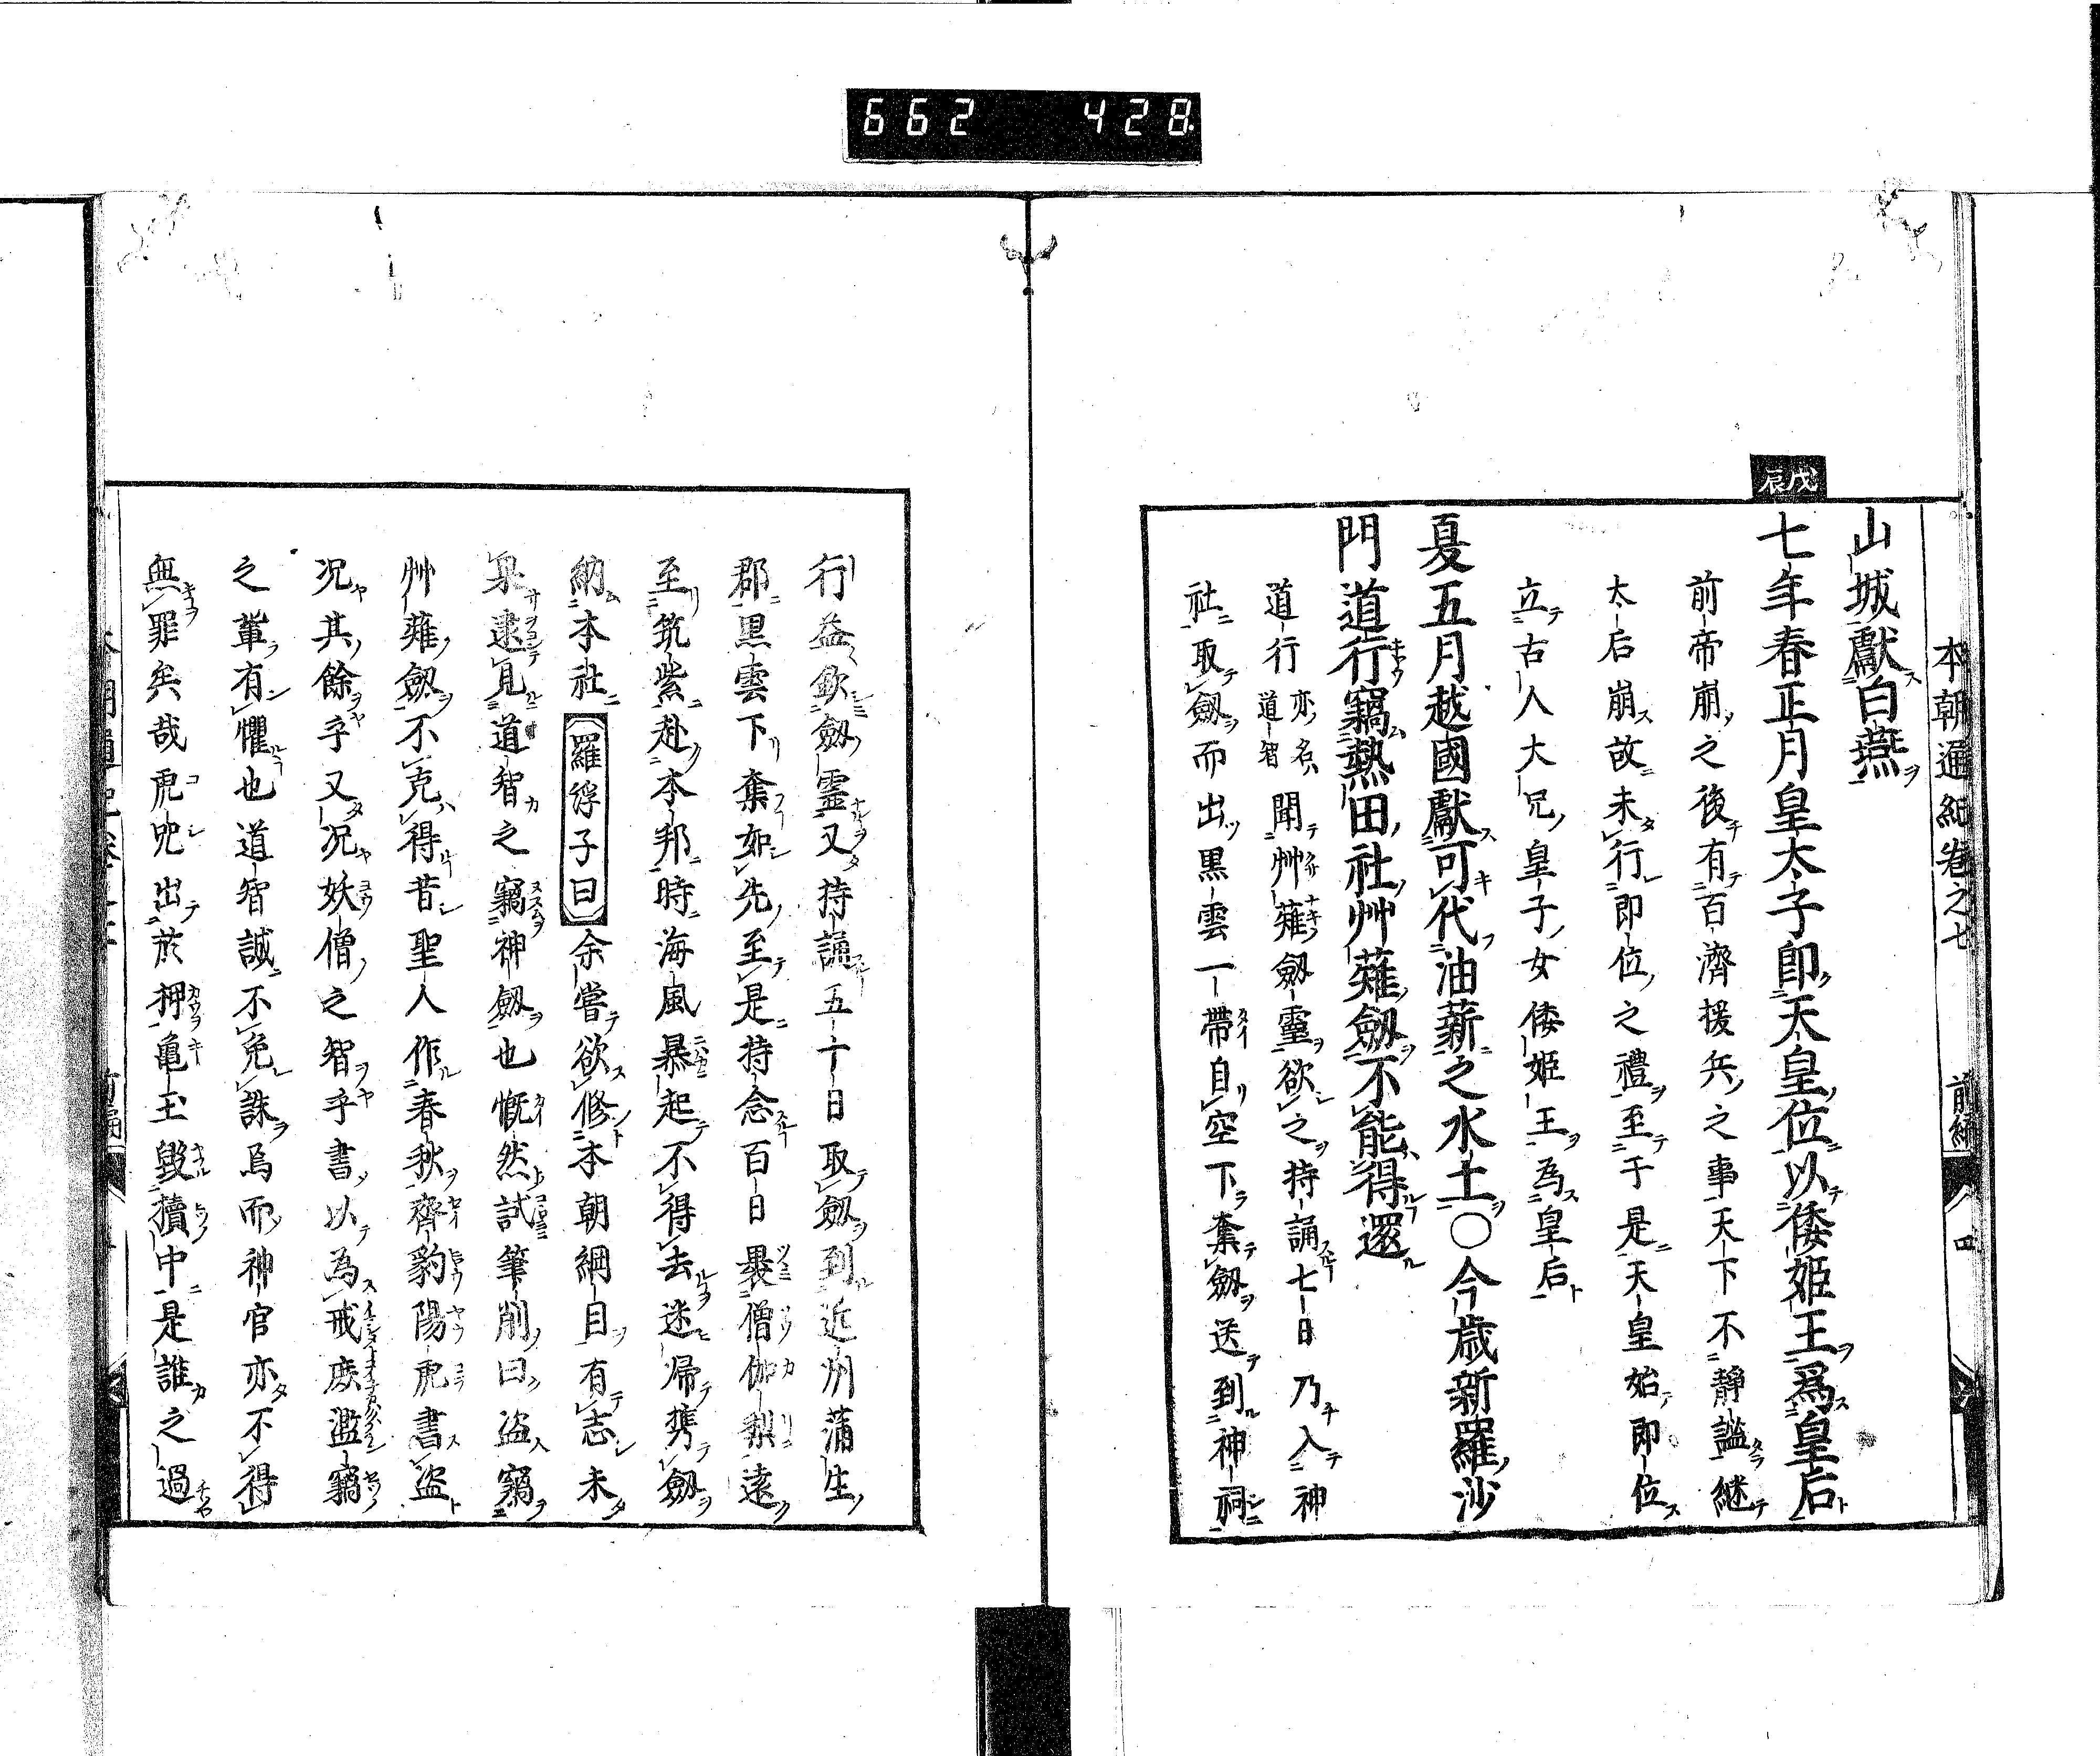 662 428
本朝通紀卷之七 前編 四
戊辰
山城獻白燕
七年春正月皇太子卽天皇位以倭姬王爲皇后
前帝崩之後有百濟援兵之事天下不靜謐継
太后崩故未行即位之禮至于是天皇始即位
立古人大兄皇子女倭姬王為皇后
夏五月越國獻可代油薪之水土〇今歲新羅沙
門道行竊熱田社艸薙劔不能得還
道行亦名道智聞艸薙劔靈欲之持誦七日乃入神
社取劔而出黒雲一帶自空下奪劔送到神祠
行益欽劔靈又持誦五十日取劔到近州蒲生
郡黒雲下奪如先至是持念百日褁僧伽梨遠
至筑紫赴本邦時海風暴起不得去迷帰携劔
納本社羅浮子曰余嘗欲修本朝綱目有志未
果逮見道智之竊神劔也慨然試筆削曰盗竊
艸薙劔不克得昔聖人作春秋齊豹陽虎書盗
况其餘乎又况妖僧之智乎書以為戒庻濫竊
之輩有懼也道智誠不免誅焉而神官亦不得
無罪矣哉虎兕出於柙亀玉毀櫝中是誰之過